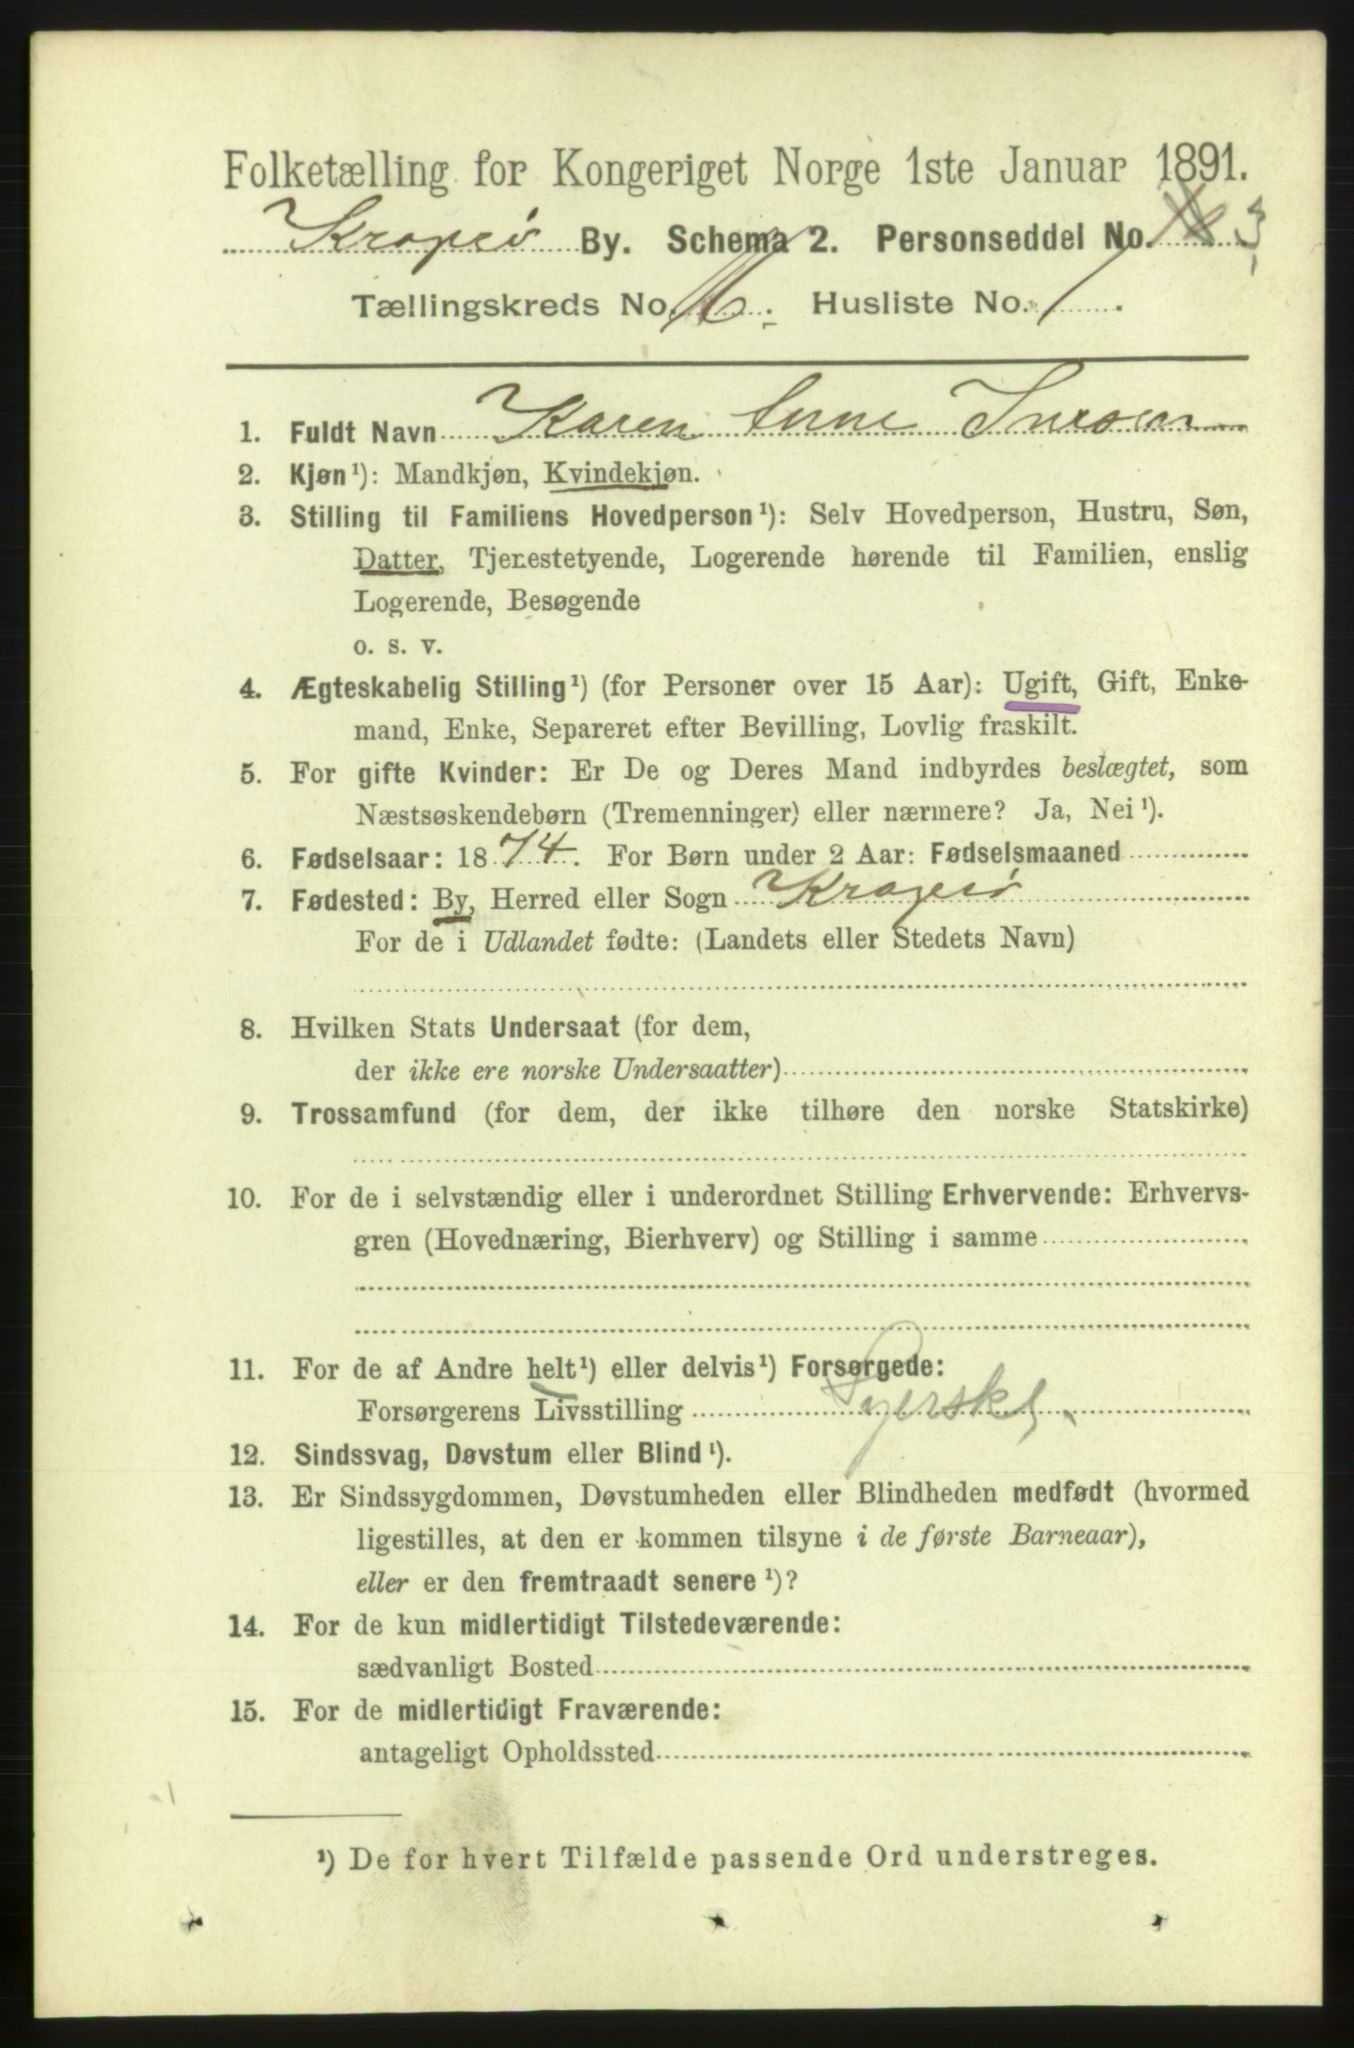 Folketælling for Kongeriget Norge 1ste Januar 1891.
Kragerø By. Schema 2. Personseddel No. 3
Tællingskreds No. 16. Husliste No. 1.
1. Fuldt Navn Karen Anne Iversen
2. Kjøn¹): Mandkjøn, Kvindekjøn.
3. Stilling til Familiens Hovedperson¹): Selv Hovedperson, Hustru, Søn,
Datter, Tjenestetyende, Logerende hørende til Familien, enslig
Logerende, Besøgende
o. s. v.
4. Ægteskabelig Stilling¹) (for Personer over 15 Aar): Ugift, Gift, Enke-
mand, Enke, Separeret efter Bevilling, Lovlig fraskilt.
5. For gifte Kvinder: Er De og Deres Mand indbyrdes beslægtet, som
Næstsøskendebørn (Tremenninger) eller nærmere? Ja, Nei¹).
6. Fødselsaar: 1874. For Børn under 2 Aar: Fødselsmaaned
7. Fødested: By, Herred eller Sogn Kragerø
For de i Udlandet fødte: (Landets eller Stedets Navn)
8. Hvilken Stats Undersaat (for dem,
der ikke ere norske Undersaatter)
9. Trossamfund (for dem, der ikke tilhøre den norske Statskirke)
10. For de i selvstændig eller i underordnet Stilling Erhvervende: Erhvervs-
gren (Hovednæring, Bierhverv) og Stilling i samme
11. For de af Andre helt¹) eller delvis¹) Forsørgede:
Forsørgerens Livsstilling
12. Sindssvag, Døvstum eller Blind¹).
13. Er Sindssygdommen, Døvstumheden eller Blindheden medfødt (hvormed
ligestilles, at den er kommen tilsyne i de første Barneaar),
eller er den fremtraadt senere¹)?
14. For de kun midlertidigt Tilstedeværende:
sædvanligt Bosted
15. For de midlertidigt Fraværende:
antageligt Opholdssted
¹) De for hvert Tilfælde passende Ord understreges.